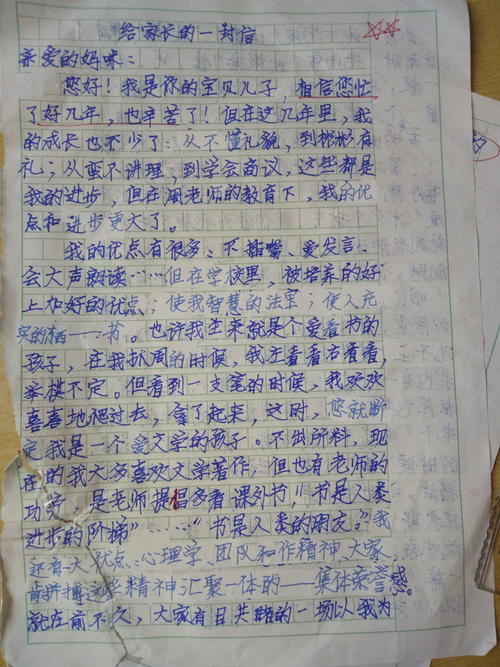 给家长的一封信
亲爱的妈咪：
您好！我是你的宝贝儿子，相信您忙
了好几年，也辛苦了！但在这几年里，我
的成长也不少了：从不懂礼貌，到彬彬有
礼；从蛮不讲理，到学会商议，这些都是
我的进步，但在周老师的教育下，我的优
点和进步更大了。
我的优点有很多：不插嘴、爱发言、
会大声朗读……但在学校里，被培养的好
上加好的优点；使我智慧的法宝；使人充
实的东西——书。也许我生来就是个爱看书的
孩子，在我抓周的时候，我左看看右看看，
举棋不定。但看到一支笔的时候，我欢欢
喜喜地爬过去，拿了起来，这时，您就断
定我是一个爱文学的孩子。不出所料，现
在的我大多喜欢文学著作，但也有老师的
功劳，是老师提倡多看课外书"书是人类
进步的阶梯"……"书是人类的朋友。"我
还有大优点：心理学、团队和作精神、大家
肯拼搏 精神汇聚一体的——集体荣誉感。
就在前不久，大家有目共睹的一场以我为